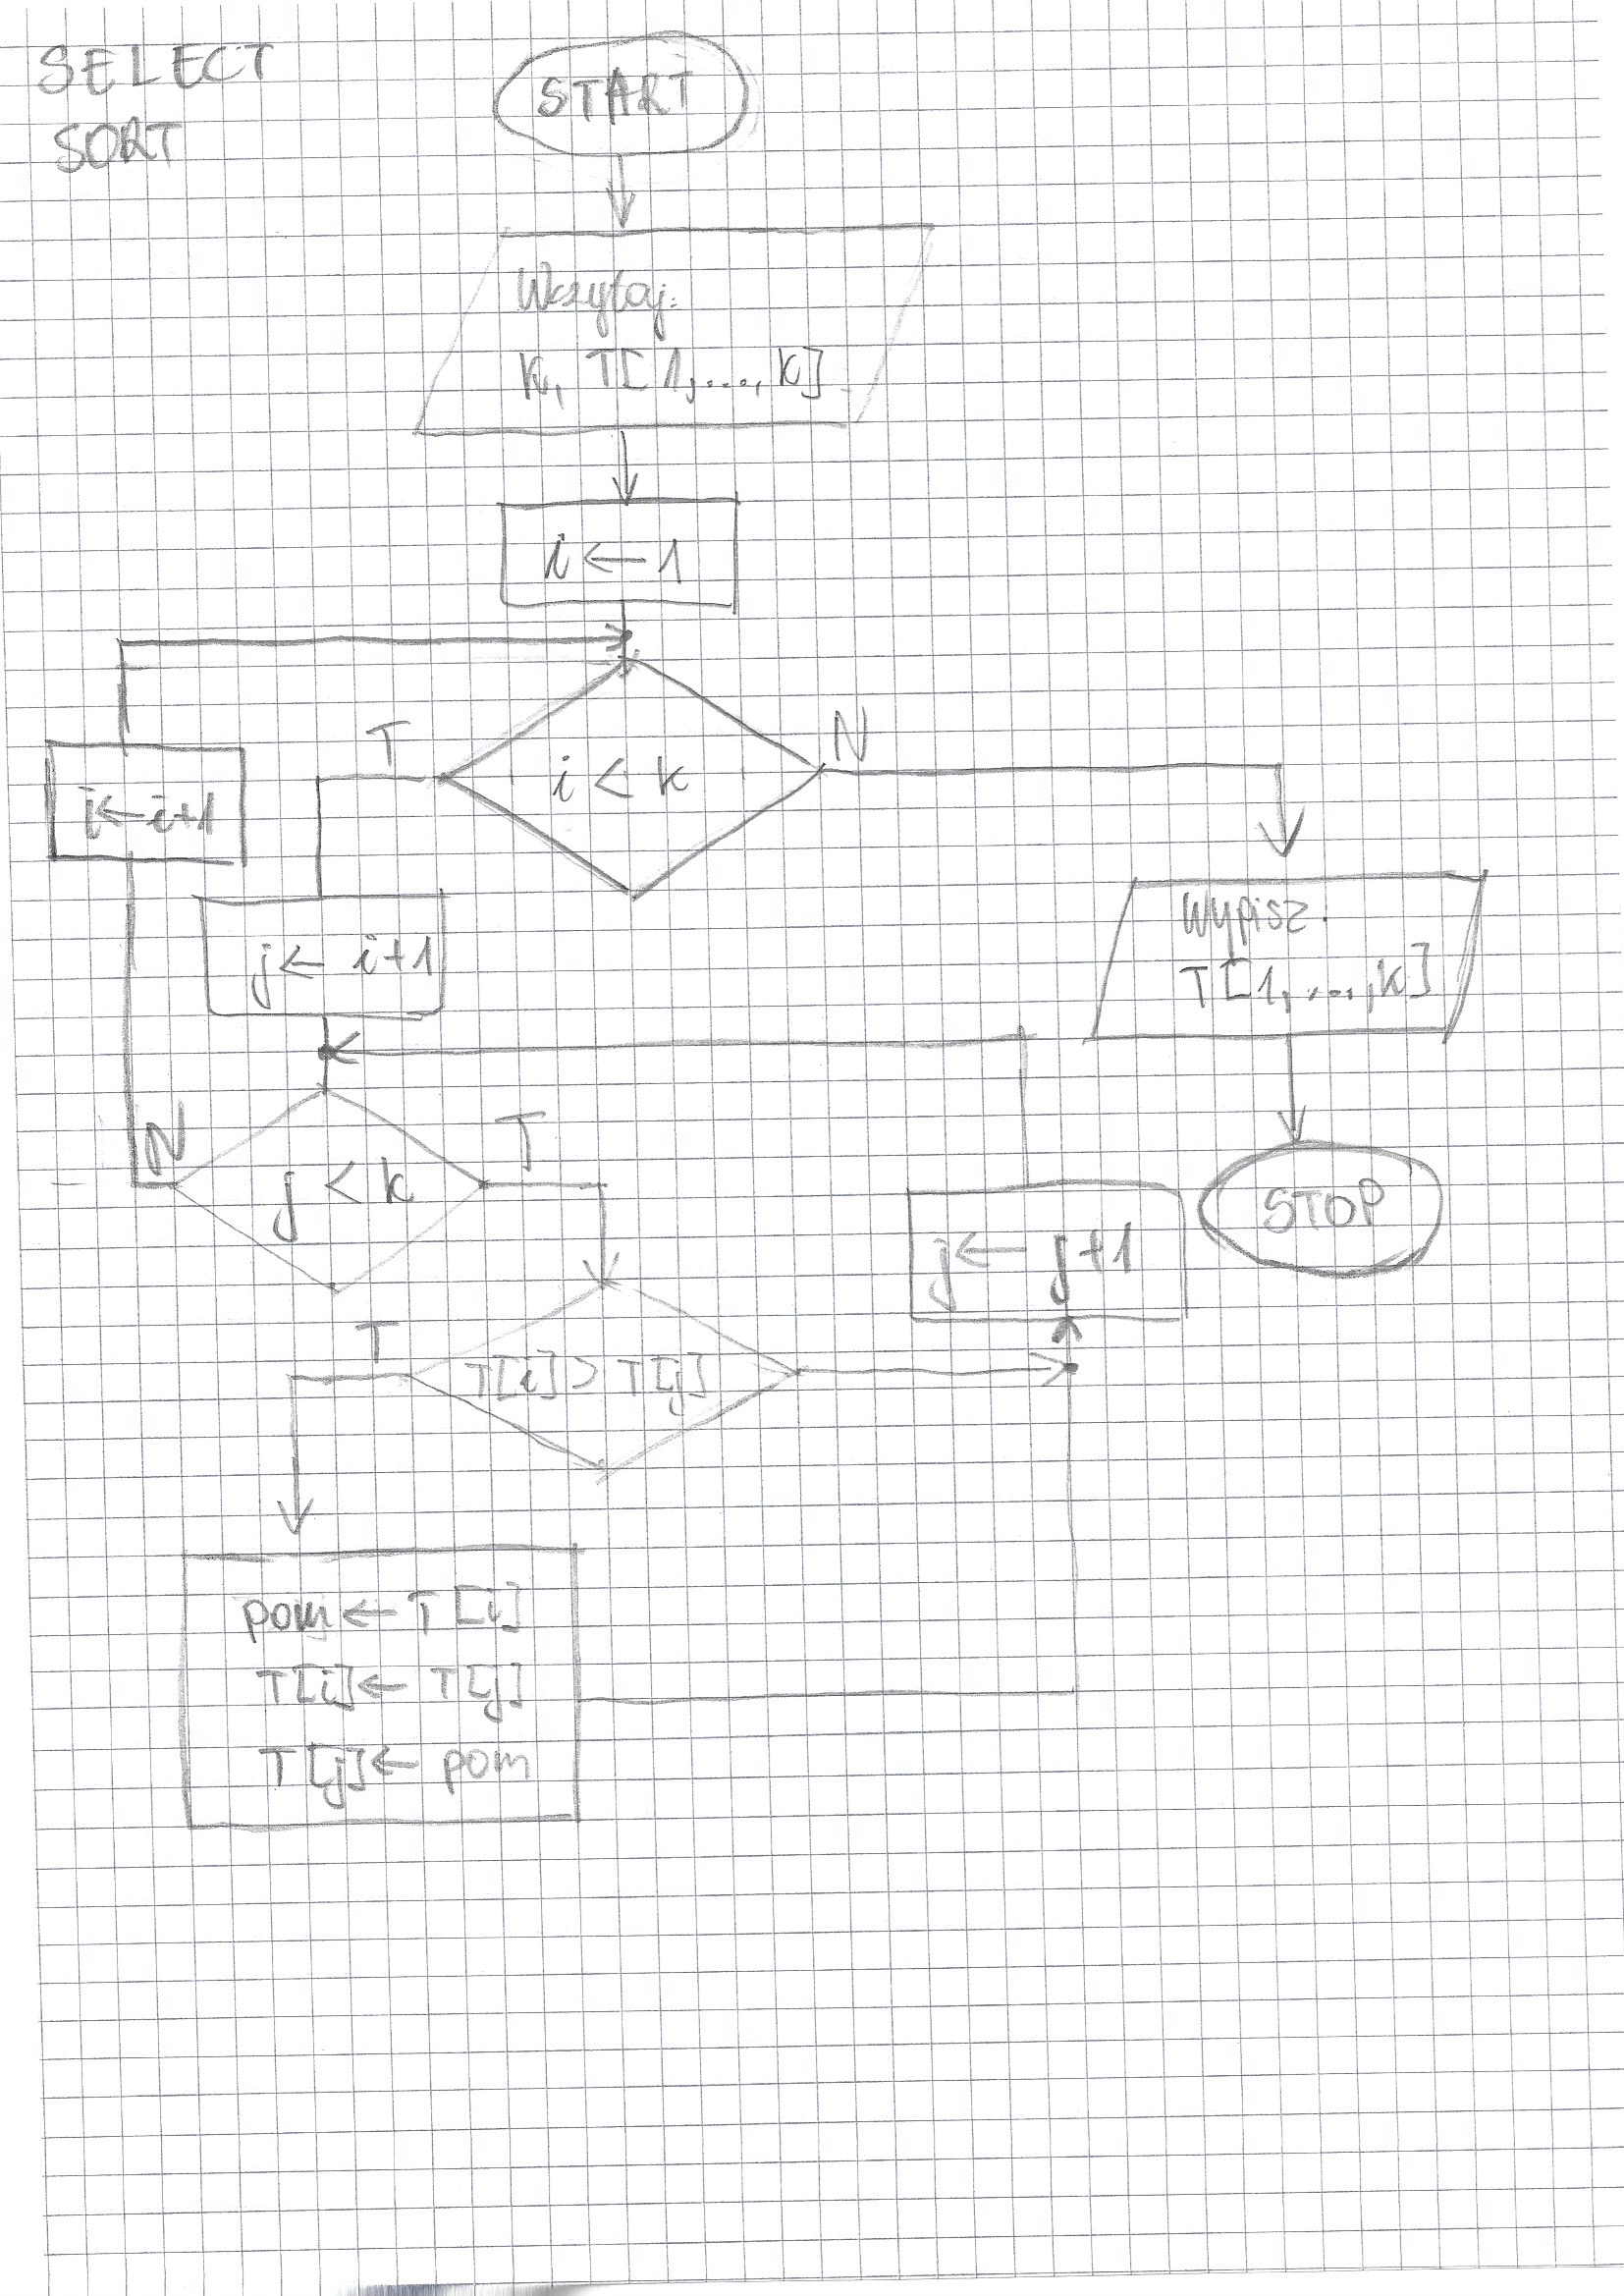 SELECT
SORT
START
Wczytaj:
k, T[1,...,k]
i ← 1
T
i < k
N
i ← i+1
j ← i+1
Wypisz:
T[1,...,k]
N
j < k
T
j ← j+1
STOP
T
T[i] > T[j]
pom ← T[i]
T[i] ← T[j]
T[j] ← pom